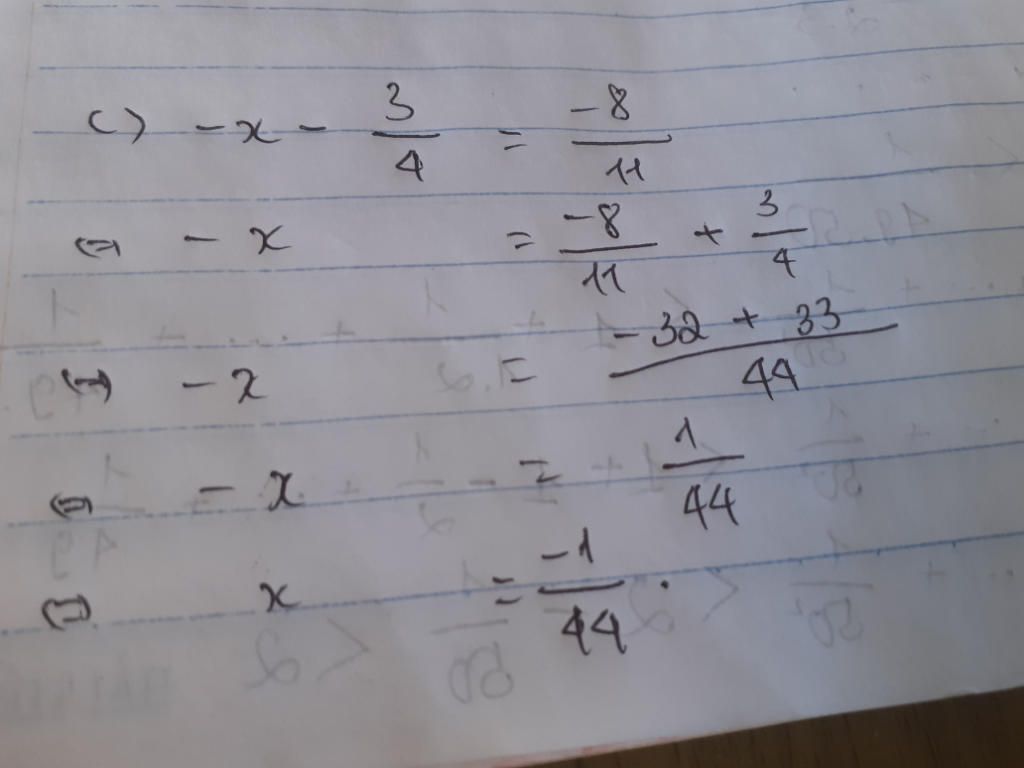 c) -x - 3/4 = -8/11
⇔ -x = -8/11 + 3/4
⇔ -x = (-32 + 33)/44
⇔ -x = 1/44
⇔ x = -1/44.